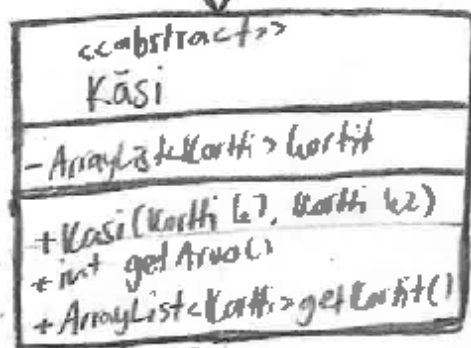 <<abstract>>
Käsi
- ArrayList<Kortti> kortit
+ Kasi(Kortti k1, Kortti k2)
+ int getArvo()
+ ArrayList<Kortti> getKortit()